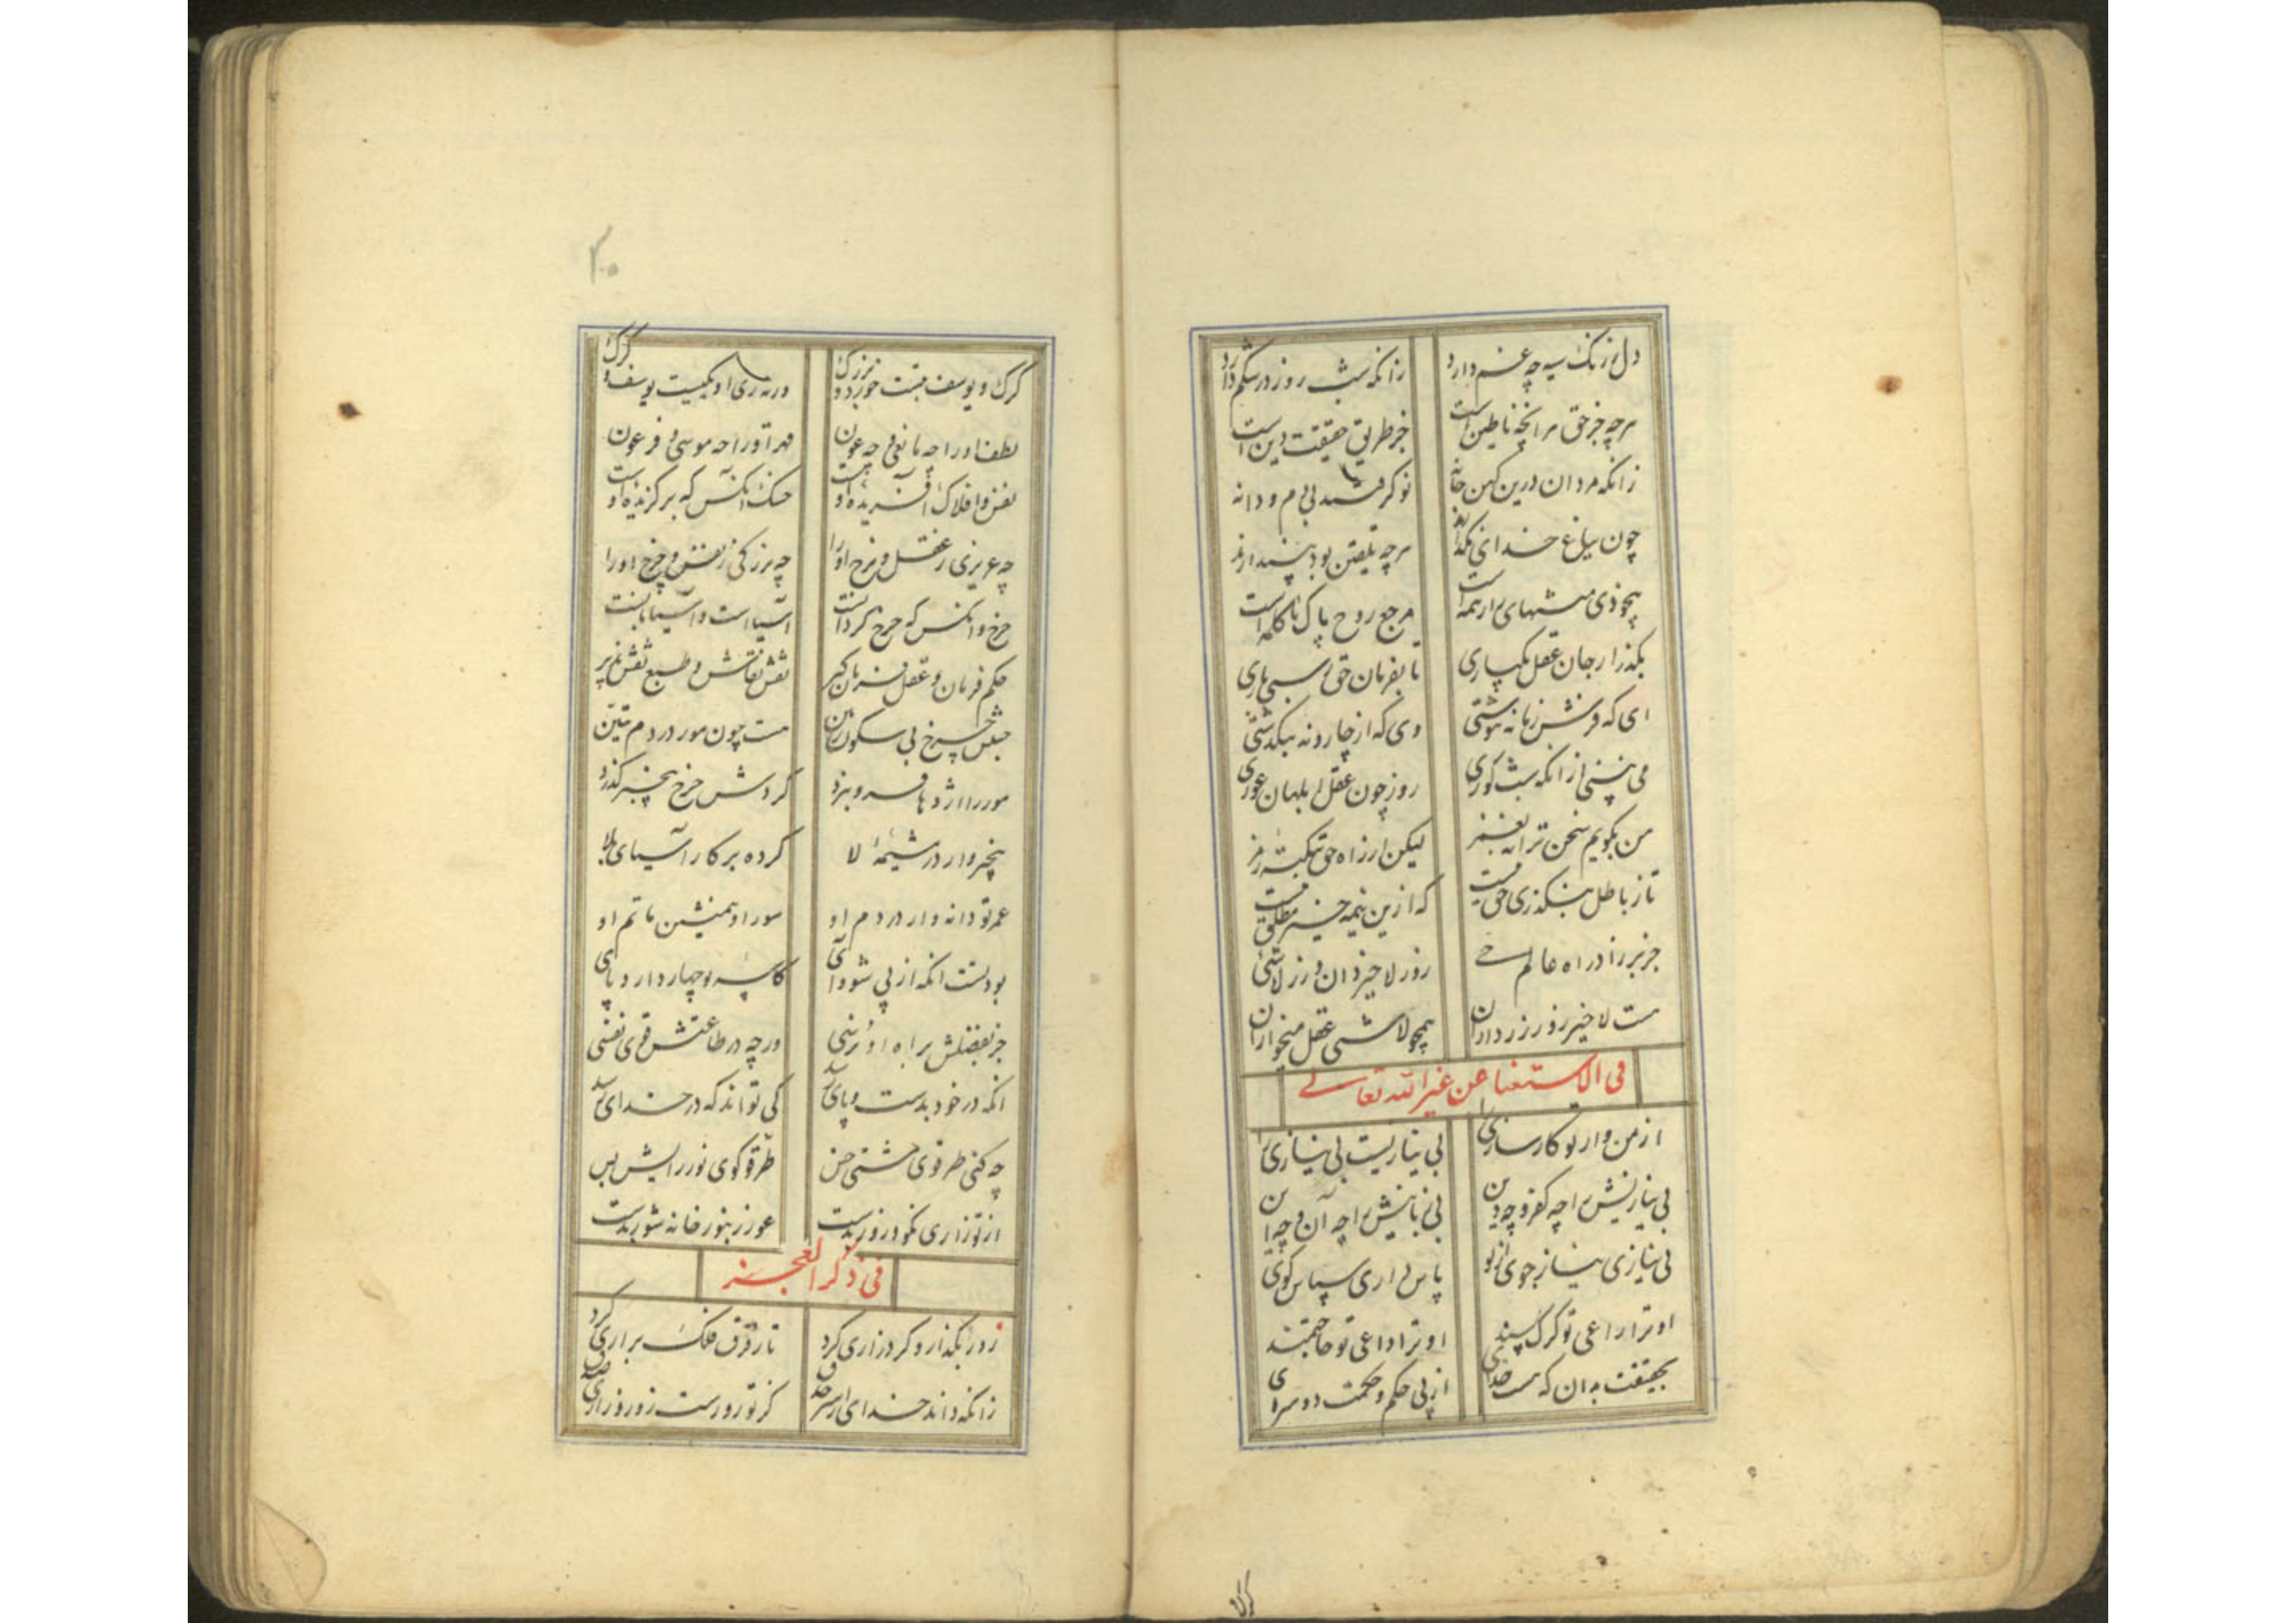 دل ز رنگ سیه چه غم دارد زانکه شب روز در شکم دارد
هرچه جز حق هرانچه ناطین است جز طریق حقیقت دین است
زانکه مردان درین کهن خانه نو گرفتند بی م و دانه
چون بباغ خدای نگذارند هرچه تلقین بود پیندارند
منتهای همه است مرجع روح پاک با کلمه است
بگذر از جان و عقل یکباری تا بفرمان حق رسی باری
ای که فرش زمانه نوشتی وی که از چار و نه بگذشتی
می نبینی از آنکه شب کوری روز چون عقل ابلهان عوری
من بگویم سخن ترا نه بغمز لیکن از راه حق بنکته و رمز
تا ز باطل بنگذری حق نیست که ازین نیمه خیر مطلق نیست
راه عالم حی روز لاخیر دان و زر لاشی
هست لاخیر زور زرداران همچو لاشی عقل میخواران
فی الاستغنا عن غیر الله تعالی
از من و از تو کارسازی را بی نیازیست بی نیازی را
بی نیازیش را چه کفر و چه دین بی زبانیش را چه آن و چه این
بی نیازی نیاز جوی از تو پاس داری سپاس گوی
او ترا راعی تو گرگ پسند او ترا داعی تو حاجتمند
بحقیقت بدان که هست خدای از پی حکم و حکمت دوسرای
گرگ
۲۰
گرگ و یوسف بتست خورد و بزرگ ورنه زی او یکیست یوسف و گرگ
لطف او را چه مانعی چه عون قهر او را چه موسی و فرعون
نفس و افلاک آفریده اوست خنک آنکس که برگزیده اوست
چه عزیزی ز عقل و نرخ او را چه بزرگی ز نفس و چرخ او را
چرخ و آنکس که چرخ گردانست آسیا است و آسیابانست
حکم فرمان و عقل فرمان گیر نقش نقاش و طبع نقش پذیر
جنبش چرخ بی سکون زمین هست چون مور در دم تنین
مور را اژدها فرو برد گردش چرخ بیخبر گذرد
بیخبر وار در مشیمه لا کرده بر کار آسیای بلا
عمر تو دانه وار در دم او سور او همنشین ماتم او
بودنت آنکه از پی شود آی که سر و چهار دارد پای
جز بفضلش براه او نرسی ورچه در طاعتش قوی نفسی
آنکه در خود بدست و پای رسد کی تواند که در خدای رسد
چه کنی طرقوی مشتی خس طرقو گوی نور رایش بس
از تو زاری نکو و زور بدست عور زنبور خانه شور بدست
فی ذکر العجز
زور بگذار و گرد زاری گرد تا ز فرق فلک براری گرد
زانکه داند خدای از سر صدق کز تو زورست زور و زاری صدق